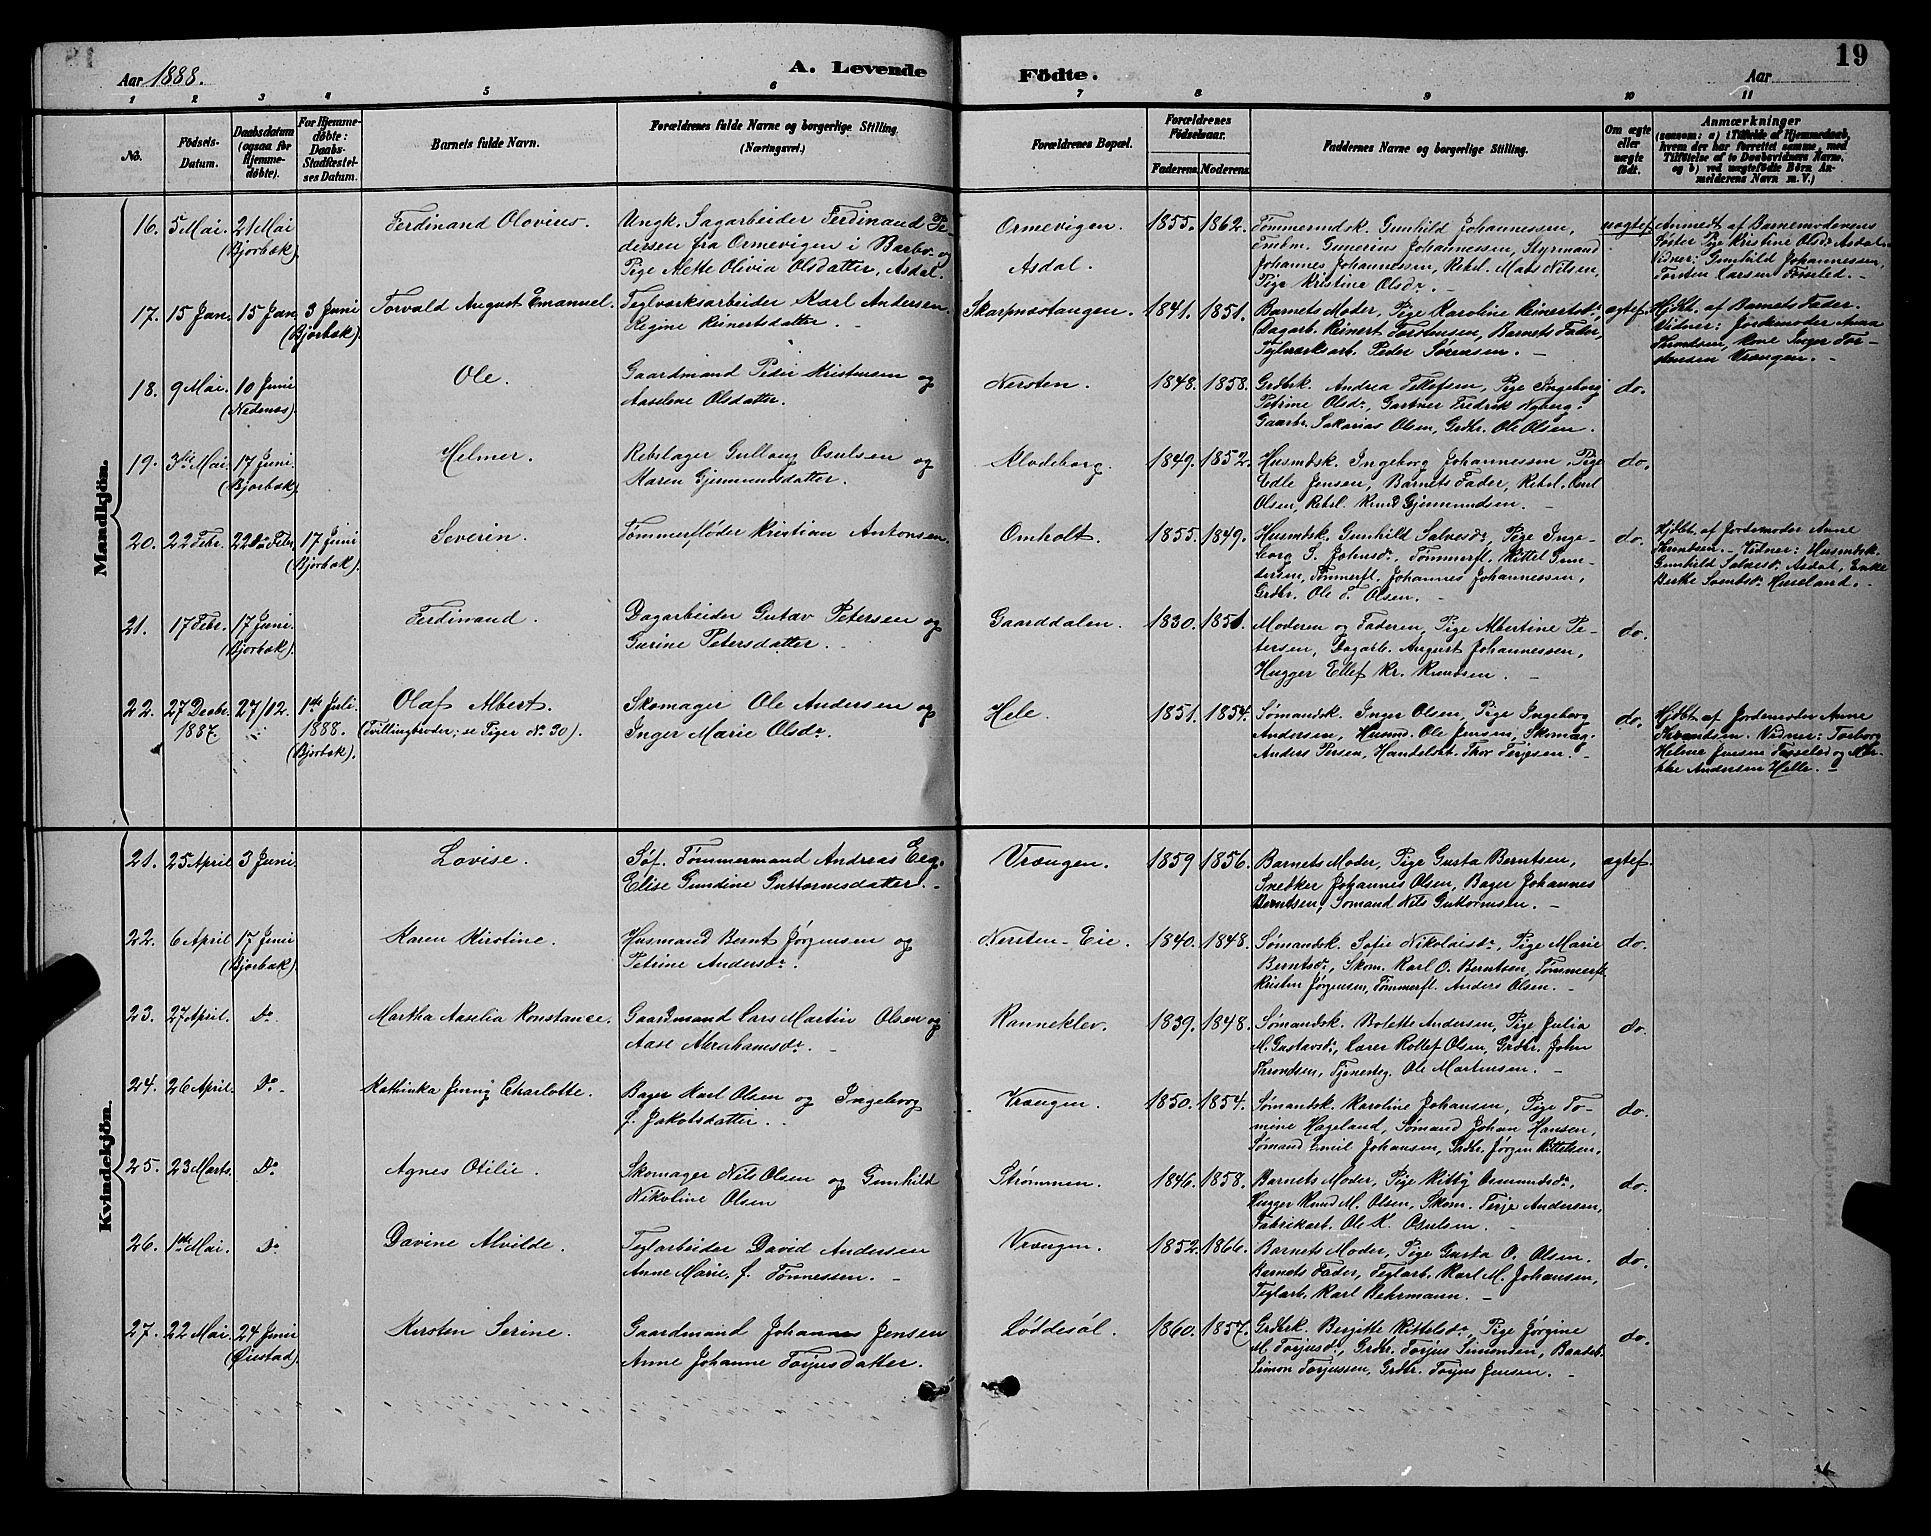 19
Aar 1888.
A. Levende
Födte.
Aar
1 2 3 4 5 6 7 8 9 10 11
No.
Födsels-
Datum.
Daabsdatum
(ogsaa for
Hjemme-
döbte).
For Hjemme-
döbte:
Daabs-
Stadfæstel-
ses Datum.
Barnets fulde Navn.
Forældrenes fulde Navne og borgerlige Stilling.
(Næringsvei.)
Forældrenes Bopæl.
Forældrenes
Födselsaar.
Faderens. Moderens.
Faddernes Navne og borgerlige Stilling.
Om ægte
eller
uægte
födt.
Anmærkninger
(saasom: a) i Tilfælde af Hjemmedaab,
hvem der har forrettet samme, med
Tilföielse af to Daabsvidners Navne,
og b) ved uægtefödte Börn An-
melderens Navn m. V.)
Mandkjön.
16. 5 Mai. 21 Mai
(Bjorbæk).
Ferdinand Olovius.
Ungk. Sagarbeider Ferdinand Pe-
dersen fra Ormevigen i Barbo og
Pige Alette Olivia Olsdatter, Asdal.
Ormevigen.
Asdal.
1855. 1862.
Tømmermdsk. Gunhild Johannessen,
Tmbm. Gunerius Johannessen, Styrmand
Johannes Johannessen, Rebsl. Mats Nilsen,
Pige Kristine Olsdr. –
uægtef.
Anmeldt af Barnemoderens
Søster Pige Kristine Olsdr Asdal.
Vidner: Gunhild Johannessen,
Torsten Larsen Fosseled. –
17. 15 Jan. 15 Jan. 3 Juni
(Bjorbæk).
Torvald August Emanuel.
Teglværksarbeider Karl Andersen
Regine Reinertsdatter. –
Skarpnæstangen.
1841. 1851.
Barnets Moder, Pige Karoline Reinertsdr,
Dagarb. Reinert Torstensen, Barnets Fader,
Teglværksarb. Peder Sørensen. –
ægtef.
Hjdbt. af Barnets Fader.
Vidner: Jordemoder Anna
Throndsen, Kone Inger Tor-
stensen Vrængen. –
18. 9 Mai. 10 Juni
(Nedenæs).
Ole.
Gaardmand Peder Kristensen og
Aaselene Olsdatter.
Nersten.
1848. 1858.
Grdbrk. Andrea Tellefsen, Pige Ingeborg
Petrine Olsdr, Gartner Fredrik Nyberg,
Gaarbr. Sakarias Olsen, Grdbr. Ole Olsen.
do.
19. 3die Mai. 17 Juni.
(Bjorbæk).
Helmer.
Rebslager Gullaug Osulsen og
Karen Gjermundsdatter.
Klodeborg.
1849. 1852.
Husmdsk. Ingeborg Johannessen, Pige
Edle Jensen, Barnets Fader, Rebsl. Karl
Olsen, Rebsl. Knud Gjermundsen.
do.
20. 22 Febr. 22de Febr. 17 Juni
(Bjorbæk).
Severin.
Tømmerfløder Kristian Antonsen.
Omholt.
1855. 1849.
Husmdsk. Gunhild Salvesdr, Pige Inge-
borg S. Johnsdr, Tømmerfl. Kittel Gun-
dersen, Tømmerfl. Johannes Johannessen,
Grdbr. Ole T. Olsen. –
do.
Hjdbt. af Jordemoder Anne
Throndsen. – Vidner: Husmdsk.
Gunhild Salvesdr Asdal, Enke
Berthe Huseland. –
21. 17 Febr. 17 Juni.
(Bjorbæk).
Ferdinand.
Dagarbeider Gustav Petersen og
Gurine Petersdatter. –
Gaarddalen.
1830. 1851.
Moderen og Faderen, Pige Albertine Pe-
tersen, Dagarb. August Johannessen,
Hugger Ellef Kr. Knudsen. –
do.
22. 27 Decbr.
1887.
27/12.
1ste Juli
1888.
(Bjorbæk).
Olaf Albert.
(Tvillingbroder; se Piger No 30).
Skomager Ole Andersen og
Inger Marie Olsdr.
Hele.
1851. 1854.
Sømandsk. Inger Olsen, Pige Ingeborg
Andersen, Husmd. Ole Jensen, Skomag.
Anders Persen, Handelsbt. Thor Terjesen. –
do.
Hjdbt. af Jordemoder Anne
Throndsen. Vidner: Torborg
Helene Jensen Fosseled og
Andersen Helle. –
Kvindekjön.
21. 25 April 3 Juni.
Lovise.
Søf. Tømmermand Andreas Eeg.
Elise Gundine Guttormsdatter. –
Vrængen.
1859 1856.
Barnets Moder, Pige Gusta Berntsen,
Snedker Johannes Olsen, Bager Johannes
Berntsen, Sømand Nils Guttormsen. –
ægtef.
22. 6 April 17 Juni
(Bjorbæk).
Karen Kirstine.
Husmand Bernt Jørgensen og
Petrine Andersdr.
Nersten-Eie.
1840. 1848.
Sømandsk. Sofie Nikolaisdr, Pige Marie
Berntsdr, Skom. Karl O. Berntsen, Tømmerfl.
Kristen Jørgensen, Tømmerfl. Anders Olsen. –
do.
23. 27 April. Do
Martha Aaselia Konstance.
Gaardmand Lars Martin Olsen og
Aase Abrahamsdr. –
Ranneklev.
1839. 1848.
Sømandsk. Bolette Andersen, Pige Julia
M. Gustavsdr, Lærer Rollef Olsen, Grdbr. John
Throndsen, Tjeneste. Ole Martinsen. –
do.
24. 26 April. Do –
Kathinka Jenny Charlotte.
Bager Karl Olsen og Ingeborg
f. Jakobsdatter. –
Vrængen.
1850. 1854.
Sømandsk. Karoline Johansen, Pige To-
mine Hageland, Sømand Johan Hansen,
Sømand Emil Johansen, Grdbr. Jørgen Kittelsen.
do.
25. 23 Marts. Do
Agnes Otilie.
Skomager Nils Olsen og Gunhild
Nikoline Olsen
Strømmen.
1846. 1858.
Barnets Moder, Pige Kitty Osmundsdr,
Hugger Knud M. Olsen, Skom. Terje Andersen,
Fabrikarb. Ole K. Osulsen. –
do.
26. 1ste Mai. Do
Davine Alvilde.
Teglarbeider David Andersen
Anne Marie, f. Tønnessen. –
Vrængen.
1852. 1866.
Barnets Moder, Pige Gusta O. Olsen.
Barnets Fader, Teglarb. Karl M. Johansen,
Teglarb. Karl Behrmann. –
do.
27. 22 Mai. 24 Juni
(Øiestad).
Kirsten Serine.
Gaardmand Johannes Jensen
Anne Johanne Torjusdatter.
Løddesøl.
1860. 1857.
Grdbrk. Birgitte Kittelsdr, Pige Jørgine
M. Torjusdr, Grdbr. Torjus Simonsen, Baadsb.
Simon Torjussen, Grdbr. Torjus Jensen. –
do.